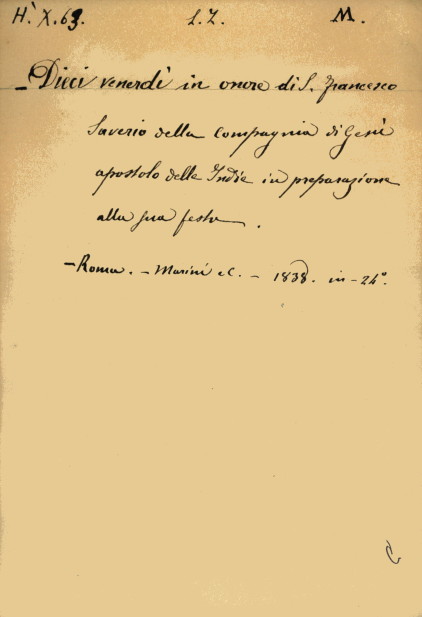 H. X. 63. S. Z. M.
— Dieci venerdì in onore di S. Francesco
Saverio della Compagnia di Gesù
apostolo delle Indie in preparazione
alla sua festa.
— Roma. — Marini e C. — 1838. in-24°.